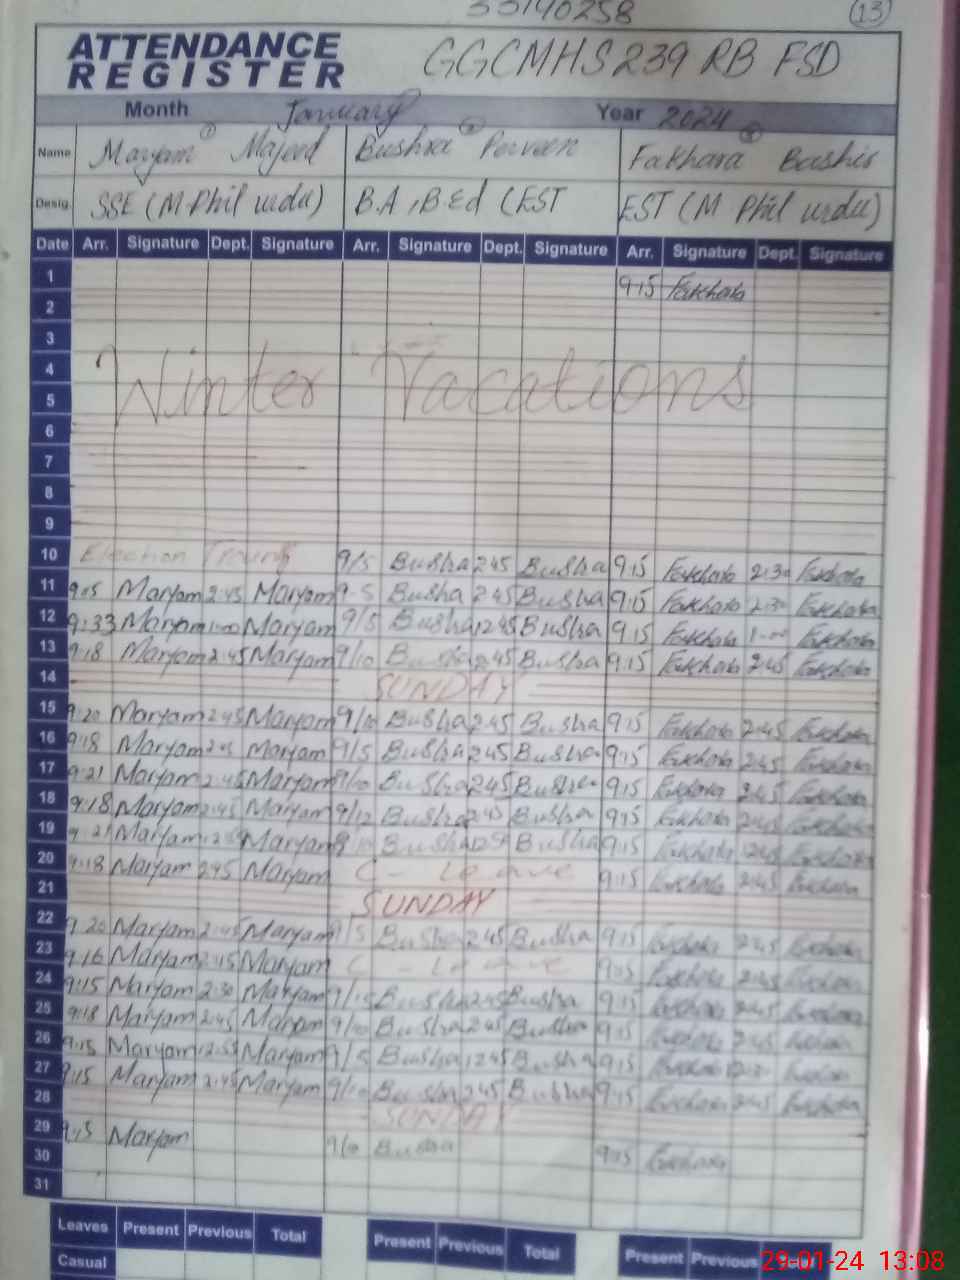 33140258
13
ATTENDANCE REGISTER GGCMHS 239 RB FSD
Month January Year 2024
1 2 3
Name Maryam Majeed Bushra Perveen Fakhara Bashir
Desig. SSE (M.Phil urdu) B.A , B.Ed (EST EST (M Phil urdu)
Date Arr. Signature Dept. Signature Arr. Signature Dept. Signature Arr. Signature Dept. Signature
1 9:15 Fakhara
2
3
4 Winter Vacations
5
6
7
8
9
10 Election 9/5 Busha 2:45 Busha 9:15 Fakhara 2:30 Fakhara
11 9:15 Maryam 2:45 Maryam 9-5 Busha 2:45 Busha 9:15 Fakhara 2:30 Fakhara
12 9:33 Maryam 1:00 Maryam 9/5 Busha 12:45 Busha 9:15 Fakhara 1:00 Fakhara
13 9:18 Maryam 2:45 Maryam 9/10 Busha 2:45 Busha 9:15 Fakhara 2:45 Fakhara
14 SUNDAY
15 9:20 Maryam 2:45 Maryam 9/10 Busha 2:45 Busha 9:15 Fakhara 2:45 Fakhara
16 9:18 Maryam 2:45 Maryam 9/5 Busha 2:45 Busha 9:15 Fakhara 2:45 Fakhara
17 9:21 Maryam 2:45 Maryam 9/10 Busha 2:45 Busha 9:15 Fakhara 2:45 Fakhara
18 9:18 Maryam 2:45 Maryam 9/12 Busha 2:45 Busha 9:15 Fakhara 2:45 Fakhara
19 9:21 Maryam Maryam Busha Busha 9:15 Fakhara 12:45 Fakhara
20 9:18 Maryam 2:45 Maryam C - Leave 9:15 Fakhara 2:45 Fakhara
21 SUNDAY
22 9:20 Maryam 2:45 Maryam 9/5 Busha 2:45 Busha 9:15 Fakhara 2:45 Fakhara
23 9:16 Maryam 2:45 Maryam C - Leave 9:15 Fakhara 2:45 Fakhara
24 9:15 Maryam 2:30 Maryam 9/15 Busha 2:45 Busha 9:15 Fakhara 2:45 Fakhara
25 9:18 Maryam 2:45 Maryam 9/10 Busha 2:45 Busha 9:15 Fakhara 2:45 Fakhara
26 9:15 Maryam 12:55 Maryam 9/5 Busha 12:45 Busha 9:15 Fakhara Fakhara
27 9:15 Maryam 2:45 Maryam 9/10 Busha 2:45 Busha 9:15 Fakhara 2:45 Fakhara
28 SUNDAY
29 9:15 Maryam 9/10 Busha 9:15 Fakhara
30
31
Leaves Present Previous Total Present Previous Total Present Previous
Casual
29-01-24 13:08